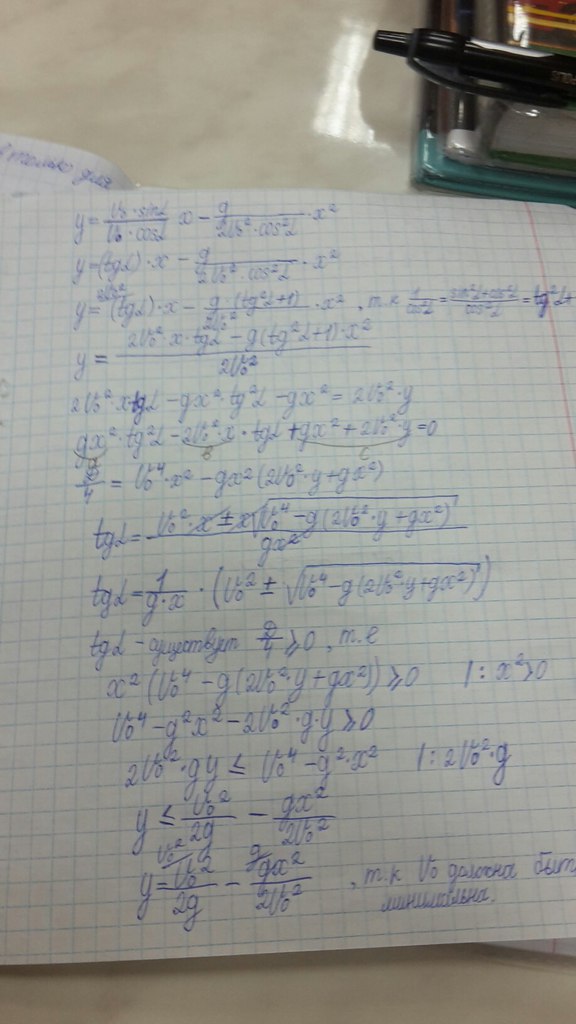 только для
y = V₀·sinα / V₀·cosα x − g / 2V₀²·cos²α · x²
y = (tgα)·x − g / 2V₀²·cos²α · x²
y = (tgα)·x − g·(tg²α+1) / 2V₀² · x², т.к 1/cos²α = sin²α+cos²α / cos²α = tg²α+
y = 2V₀²·x·tgα − g(tg²α+1)·x² / 2V₀²
2V₀²·x·tgα − gx²·tg²α − gx² = 2V₀²·y
gx²·tg²α − 2V₀²·x·tgα + gx² + 2V₀²·y = 0
D/4 = V₀⁴·x² − gx²(2V₀²·y + gx²)
tgα = V₀²·x ± x√(V₀⁴ − g(2V₀²·y + gx²)) / gx²
tgα = 1/g·x · (V₀² ± √(V₀⁴ − g(2V₀²·y + gx²)))
tgα – существует D/4 ⩾ 0, т.е
x²(V₀⁴ − g(2V₀²·y + gx²)) ⩾ 0 |: x² > 0
V₀⁴ − g²x² − 2V₀²·g·y ⩾ 0
2V₀²·gy ≤ V₀⁴ − g²·x² |: 2V₀²·g
y ≤ V₀²/2g − gx²/2V₀²
y = V₀²/2g − gx²/2V₀², т.к V₀ должна быт
минимальна.